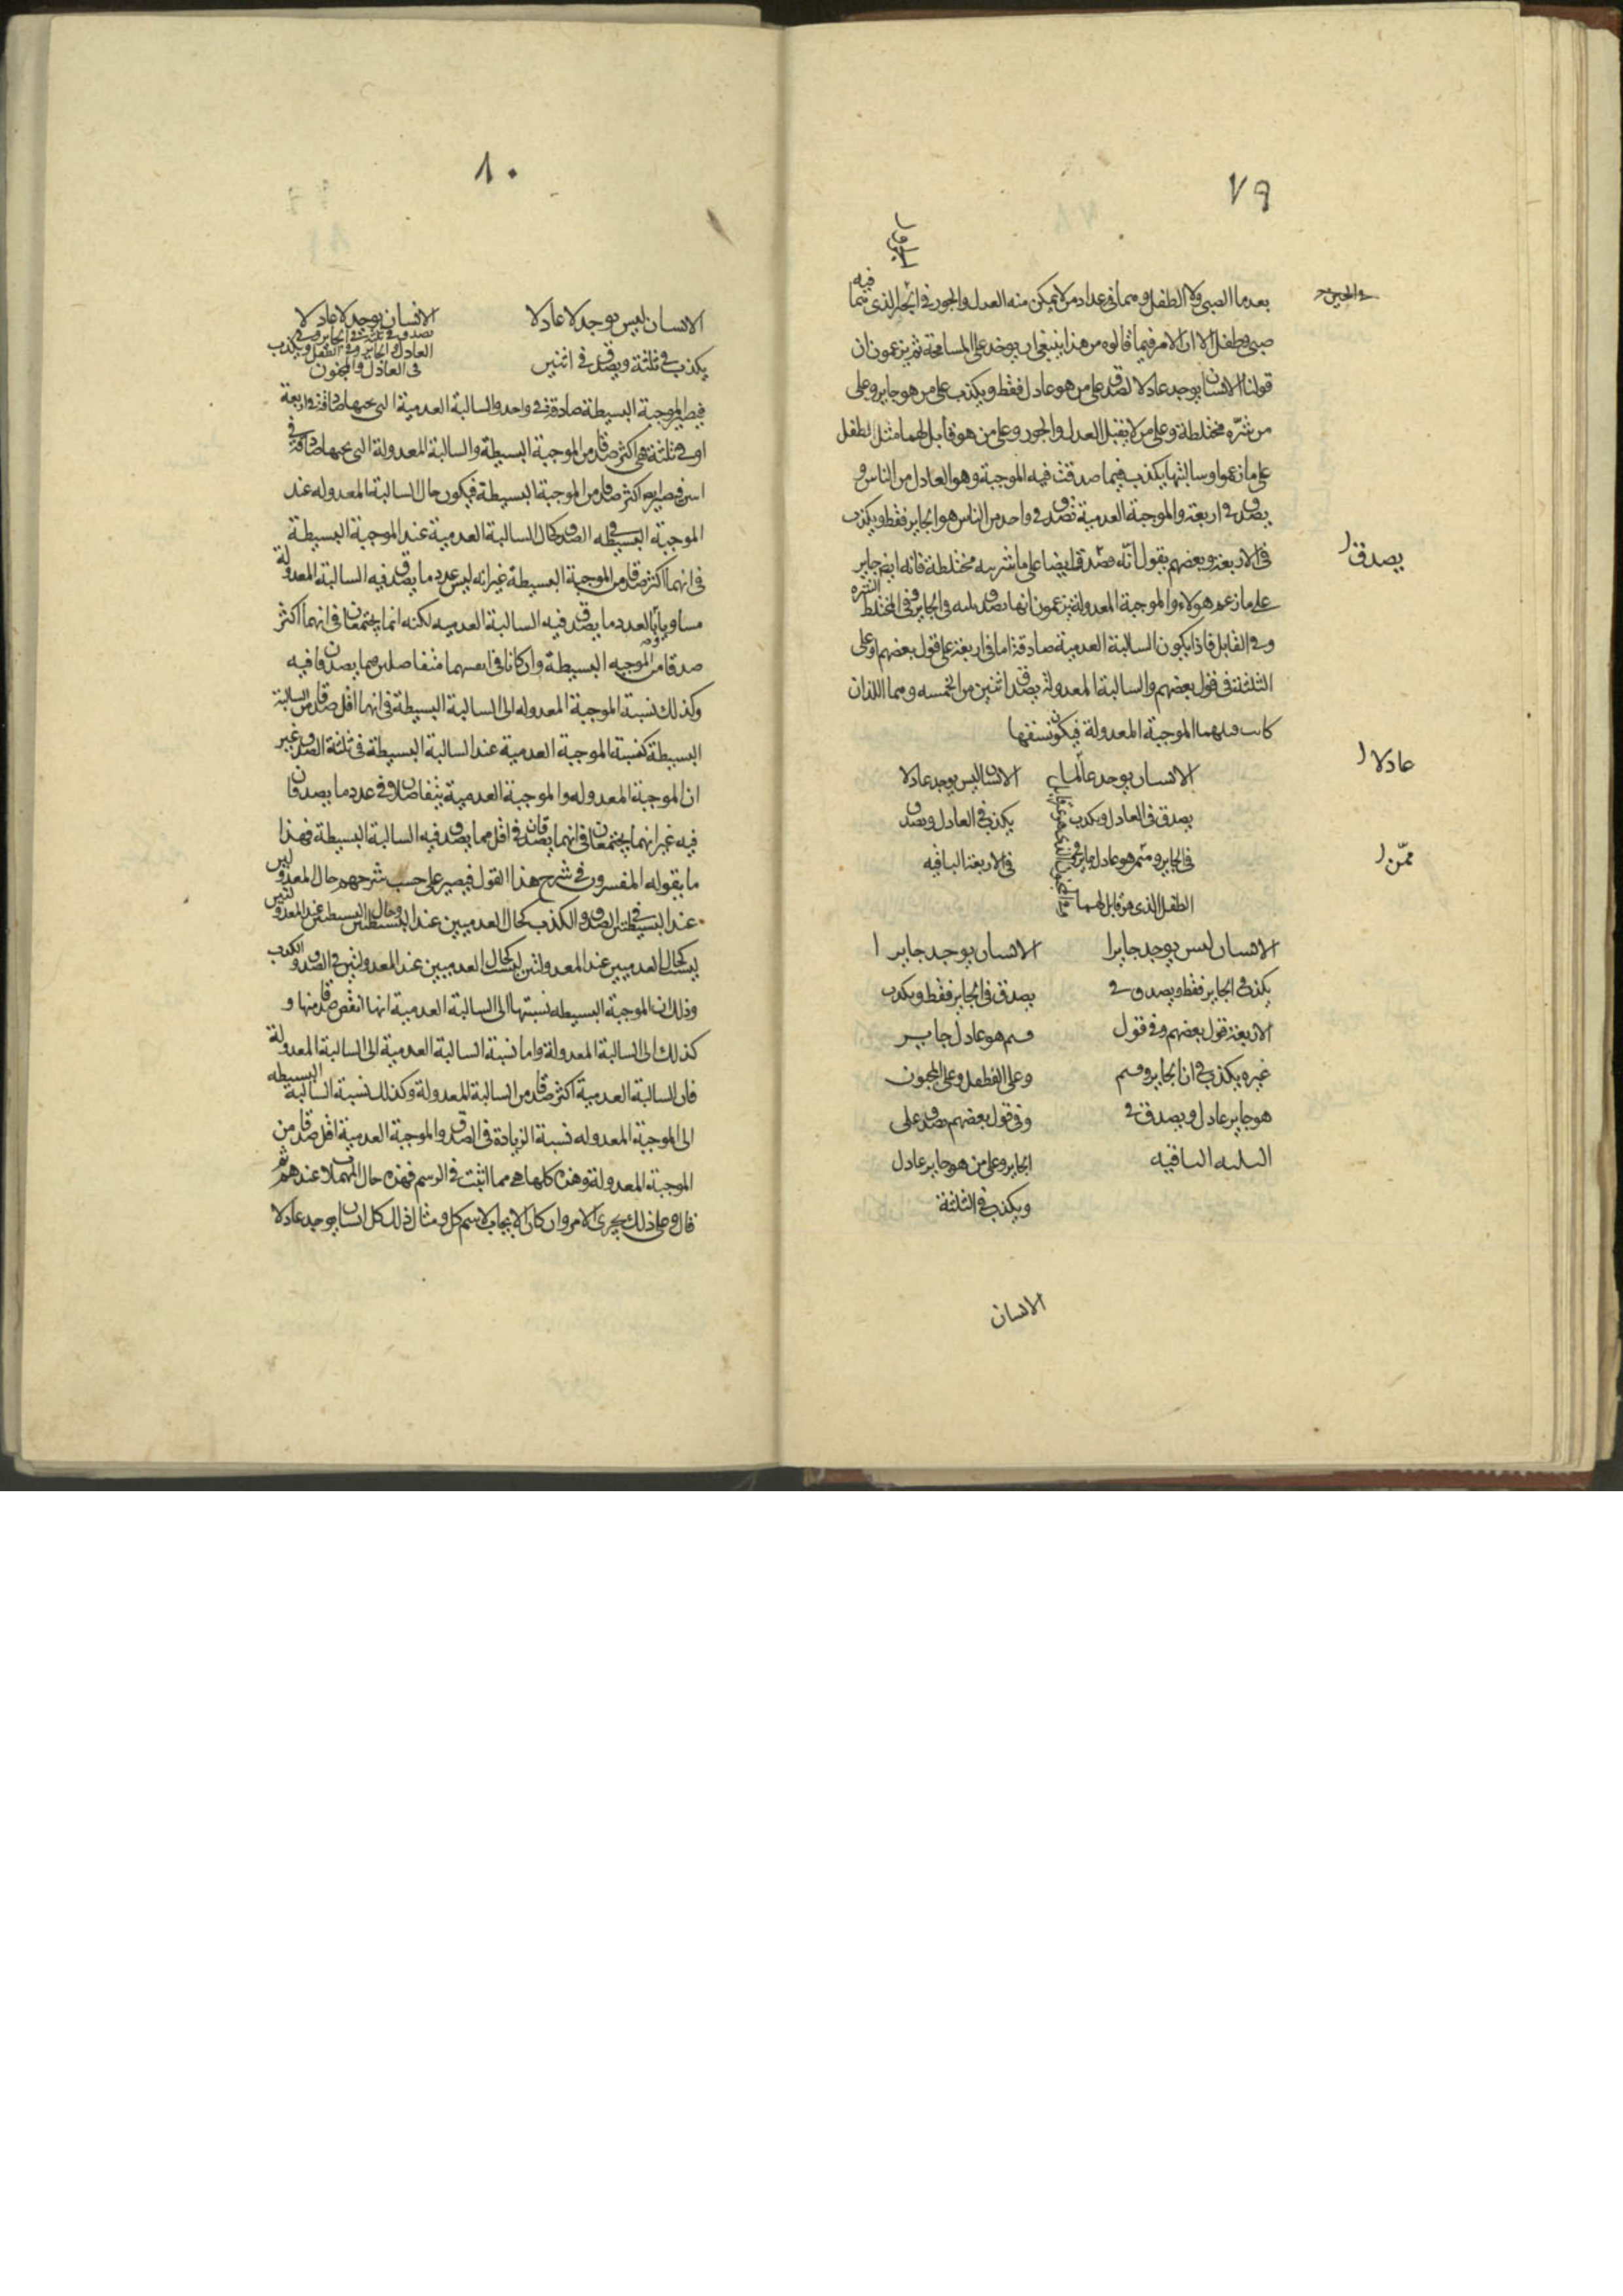 ٧٩
بعدها الصبى ولا الطفل وهما فى عداد من لا يمكن منه العدل والجور فى الذى هما فيه
فى الحين
صبى وطفل الا ان الامر فيما قالوه من هذا ينبغى ان يوخذ على المسامحة ثم يزعمون ان
قولنا الانسان يوجد عادلا تصدق على من هو عادل فقط ويكذب على من هو جاير وعلى
من شرّه مختلطة وعلى من لا يقبل العدل والجور وعلى من هو قابل لهما مثل الطفل
على ما زعموا وسالبتها يكذب فيما صدقت فيه الموجبة وهو العادل من الناس و
يصدق فى اربعة والموجبة العدمية تصدق فى واحد من الناس هو الجاير فقط ويكذب
فى الاربعة وبعضهم يقول انه يصدق ايضا على ما شربه مختلطة فانه ايضا جاير
يصدق
على ما زعم هولاء والموجبة المعدولة يزعمون انها تصدق فى الجاير وفى المختلط
وفى القابل فاذا يكون السالبة العدمية صادقة اما فى اربعة على قول بعضهم او على
الثلثة فى قول بعضهم والسالبة المعدولة يصدق اثنين من الخمسه وهما اللذان
كانت الموجبة المعدولة فيكون نسقها
الانسان يوجد عادلا
الانسان ليس يوجد عادلا
عادلا
يصدق فى العادل ويكذب
يكذب فى العادل ويصدق
فى الجاير وممن هو عادل جاير وفى
فى الاربعة الباقيه
ممّن
الطفل الذى هو قابل لهما
الانسان ليس يوجد جايرا
الانسان يوجد جايرا
يكذب فى الجاير فقط ويصدق فى
يصدق فى الجاير فقط ويكذب
الاربعة قول بعضهم وفى قول
هو عادل جاير
غيره يكذب فى ان الجاير
وعلى الطفل وعلى المجنون
هو جاير عادل ويصدق فى
وفى قول بعضهم يصدق على
الثلثه الباقيه
الجاير وعلى من هو جاير عادل
ويكذب فى الثلثة
الانسان
٨٠
الانسان ليس يوجد لا عادلا
الانسان يوجد لا عادلا
يكذب فى ثلثة ويصدق فى اثنين
يصدق فى ثلثة فى الجاير وفى
العادل والجاير وفى الطفل ويكذب
فى العادل والمجنون
فيصير الموجبة البسيطة صادقة فى واحد والسالبة العدمية التى تحتها صادقة فى اربعة
او فى ثلثة هى اكثر صدقا من الموجبة البسيطة والسالبة المعدولة التى تحتها صادقة فى
اثنين فيصير اكثر صدقا من الموجبة البسيطة فيكون حال السالبة المعدوله عند
الموجبة البسيطه فى الصدق كحال السالبة العدمية عند الموجبة البسيطة
فى انهما اكثر صدقا من الموجبة البسيطة غير انه ليس عدد ما يصدق فيه السالبة المعدولة
مساويا لعدد ما يصدق فيه السالبة العدميه لكنه انما يجتمعان فى انهما اكثر
صدقا من الموجبه البسيطة وان كانا فى انفسهما متفاضلين فيما يصدقا فيه
وكذلك نسبة الموجبة المعدوله الى السالبة البسيطة فى انهما اقل صدقا من السالبة
البسيطة كنسبة الموجبة العدمية عند السالبة البسيطة فى ثلثة الصدق غير
ان الموجبة المعدوله والموجبة العدمية يتفاضلان فى عدد ما يصدقان
فيه غير انهما يجتمعان فى انهما يصدقان فى اقل مما يصدق فيه السالبة البسيطة فهذا
ما يقوله المفسرون فى شرح هذا القول فيصير على حسب شرحهم حال المعدولتين
عند البسيطتين فى الصدق والكذب كحال العدميين عند البسيطتين وحال البسيطتين عند المعدولتين
ليست كحال العدميين عند المعدولتين فى الصدق والكذب
وذلك ان الموجبة البسيطه نسبتها الى السالبة العدمية انها انقص صدقا منها و
كذلك الى السالبة المعدولة واما نسبة السالبة العدمية الى السالبة المعدولة
فان السالبة العدمية اكثر صدقا من السالبة المعدولة وكذلك نسبة السالبة البسيطه
الى الموجبة المعدوله نسبة الزيادة فى الصدق والموجبة العدمية اقل صدقا من
الموجبة المعدولة وهذه كلها هى مما اثبت فى الرسم فهذه حال المهملات عندهم ثم
قال وعلى ذلك يجرى الامر وان كان الايجاب لاسم كلى ومثال ذلك كل انسان يوجد عادلا